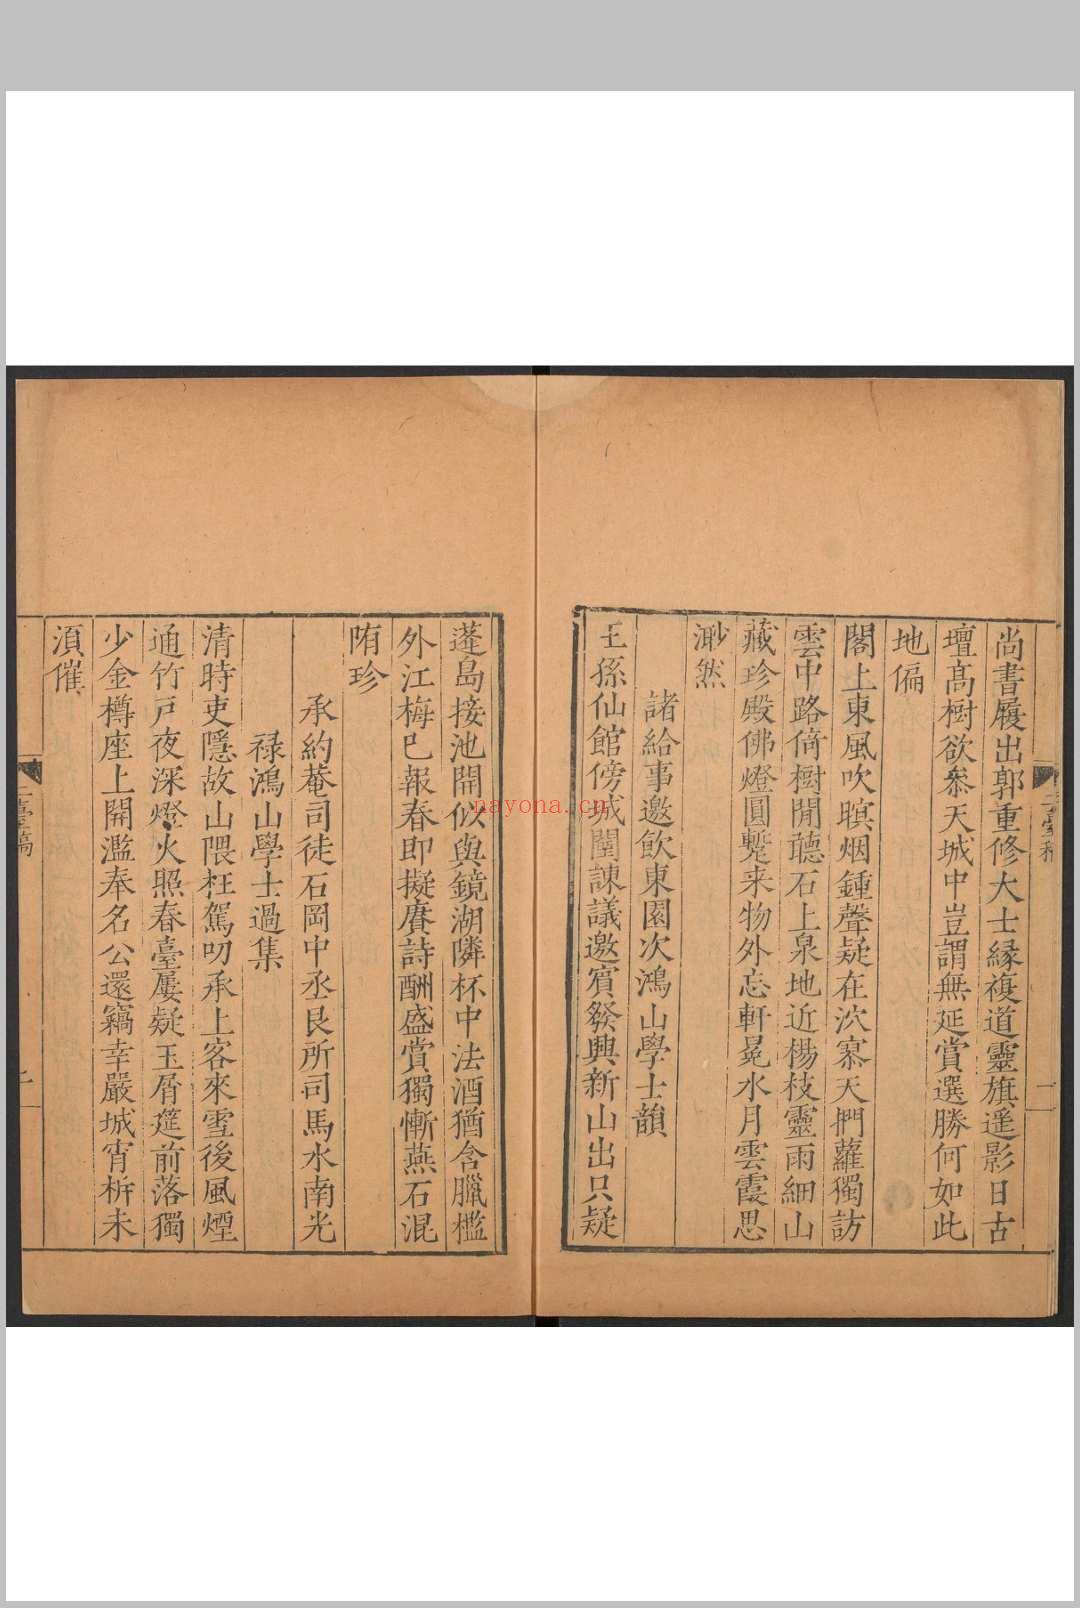 尚書履出郭重修大士縁複道靈旗遥影日古
壇髙樹欲叅天城中豈謂無延賞選勝何如此
地偏
閣上東風吹暝烟鍾聲疑在泬寥天捫蘿獨訪
雲中路倚樹閒聴石上泉地近楊枝靈雨細山
藏珍殿佛燈圓蹔来物外忘軒冕水月雲霞思
渺然
諸給事邀飲東園次鴻山學士韻
王孫仙館傍城闉諫議邀賔發興新山出只疑
蓬島接池開似與鏡湖隣杯中法酒猶含臘檻
外江梅已報春即擬賡詩酬盛賞獨慚燕石混
陏珍
承約菴司徒石岡中丞艮所司馬水南光
禄鴻山學士過集
清時吏隱故山隈枉駕叨承上客來雪後風煙
通竹戸夜深燈火照春臺屢疑玉屑筵前落獨
少金樽座上開濫奉名公還竊幸嚴城宵柝未
湏催
nayona.cn